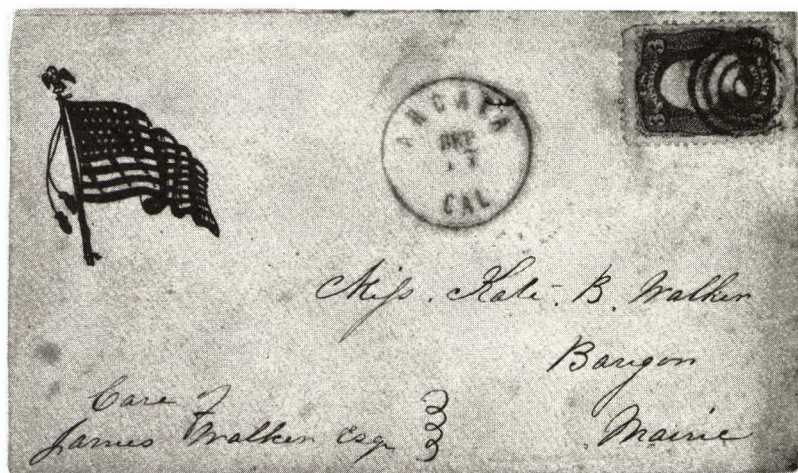 ARCATA
DEC
CAL
3 3
Miss. Kate. B. Walker
Bangor
Maine
Care of
James Walker Esqr